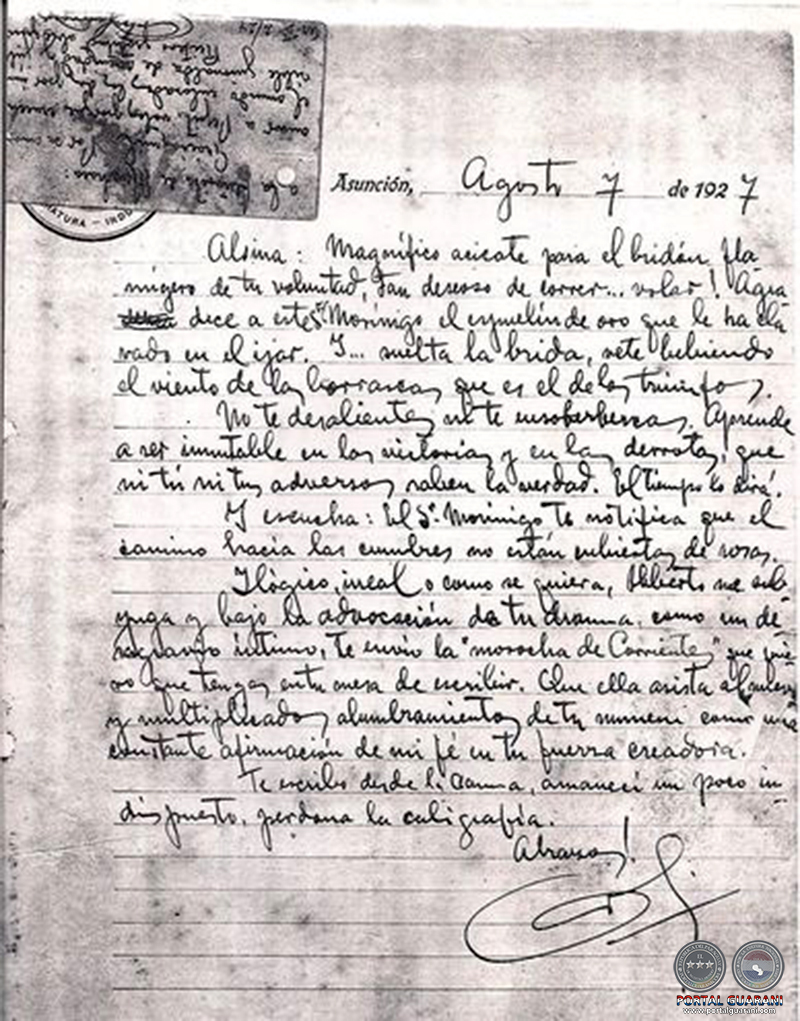 a la
amor a
el amor
Asunción, Agosto 7 de 1927
ATURA — INDU
Alsina: Magnífico acicate para el bridón fla-
mígero de tu voluntad, tan deseoso de correr... volar! Agra-
dece a este Sr. Morinigo el espuelín de oro que le ha cla-
vado en el ijar. Y... suelta la brida, vete bebiendo
el viento de las borrascas que es el de los triunfos.
No te desalientes ni te ensoberbezcas. Aprende
a ser inmutable en las victorias y en las derrotas, que
ni tú ni tus adversos saben la verdad. El tiempo lo dirá.
Y escucha: El Sr. Morinigo te notifica que el
camino hacia las cumbres no están cubiertas de rosas.
Ilógico, irreal o como se quiera, Alberto me sub-
yuga y bajo la advocación de tu drama, como un de-
sagravio íntimo, te envío la "morocha de Corrientes" que quie-
ro que tengas en tu mesa de escribir. Que ella asista a
y multiplicados alumbramientos de tu numen como una
constante afirmación de mi fé en tu fuerza creadora.
Te escribo desde la cama, amanecí un poco in-
dispuesto, perdona la caligrafía.
Abrazos!
PORTAL GUARANI
www.portalguarani.com